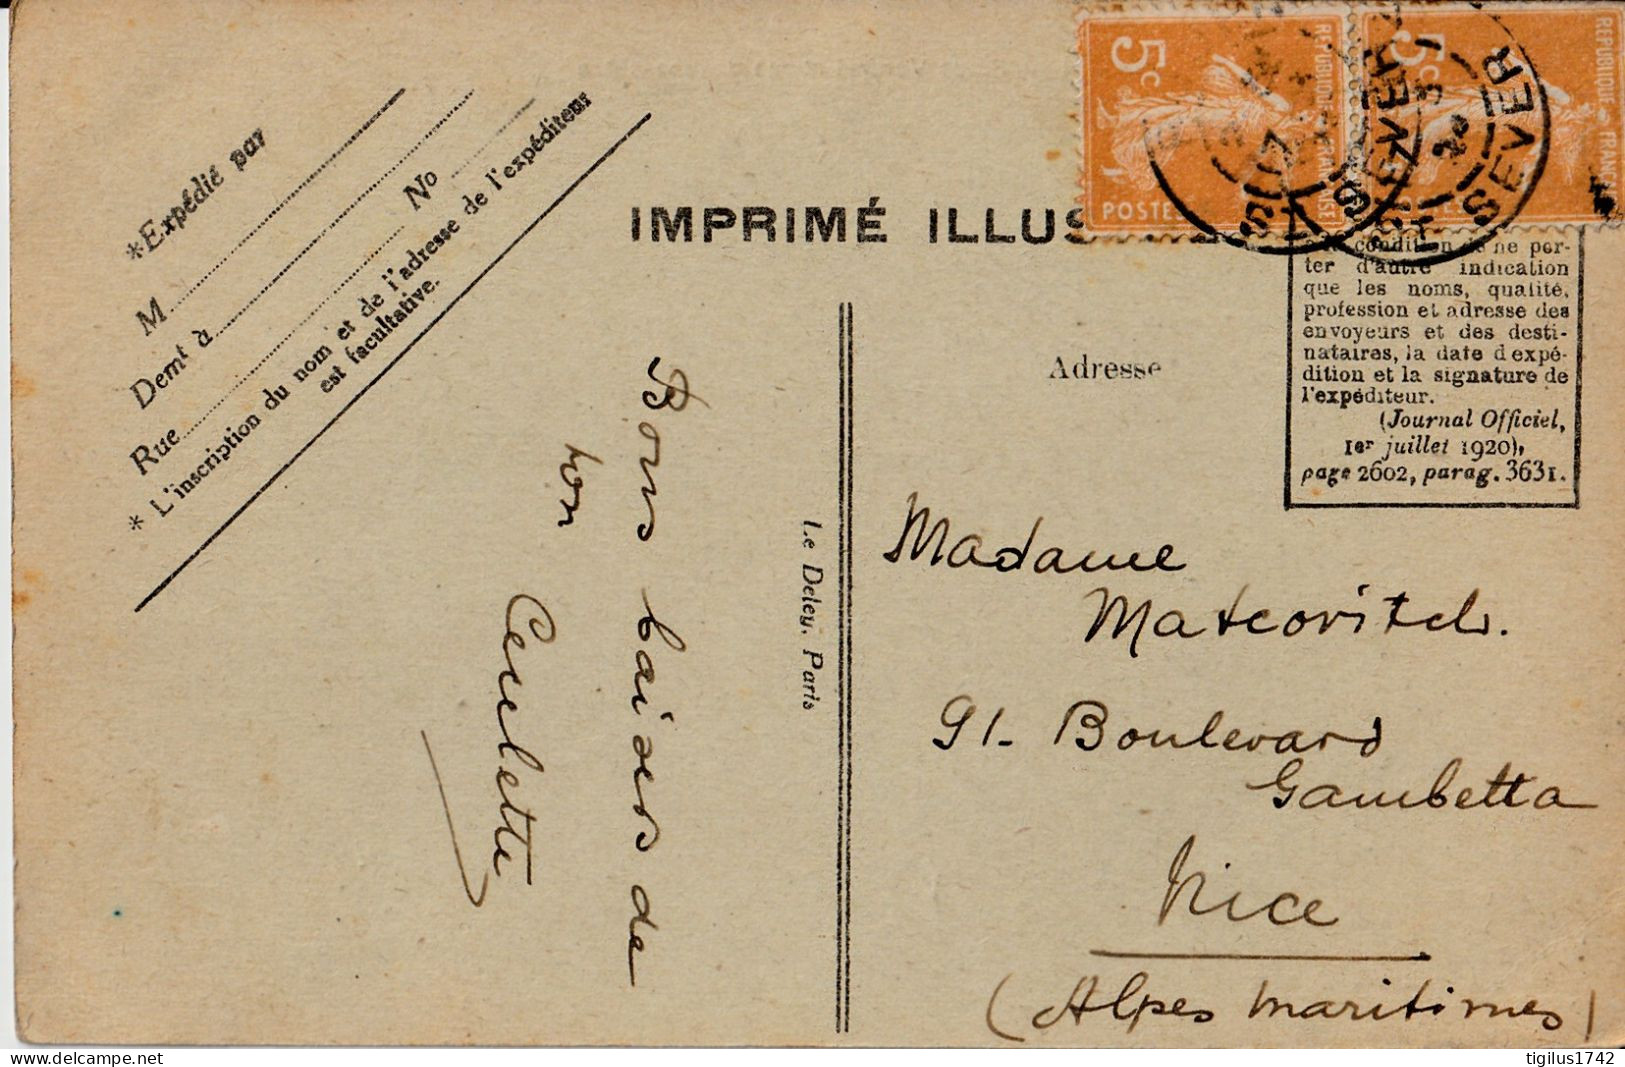 *Expédié par
M
Demt à
No
Rue
* L'inscription du nom et de l'adresse de l'expéditeur
est facultative.
IMPRIMÉ ILLUS
5c
REPUBLIQUE FRANÇAISE
POSTES
5c
REPUBLIQUE FRANÇAISE
SEVER
SEVER
condition de ne por-
ter d'autre indication
que les noms, qualité,
profession et adresse des
envoyeurs et des desti-
nataires, la date d'expé-
dition et la signature de
l'expéditeur.
(Journal Officiel,
1er juillet 1920),
page 2602, parag. 3631.
Adresse
Bons baisers de
ton
Le Deley. Paris
Madame
Matcovitch.
91- Boulevard
Gambetta
Nice
(Alpes maritimes)
www.delcampe.net
tigilus1742